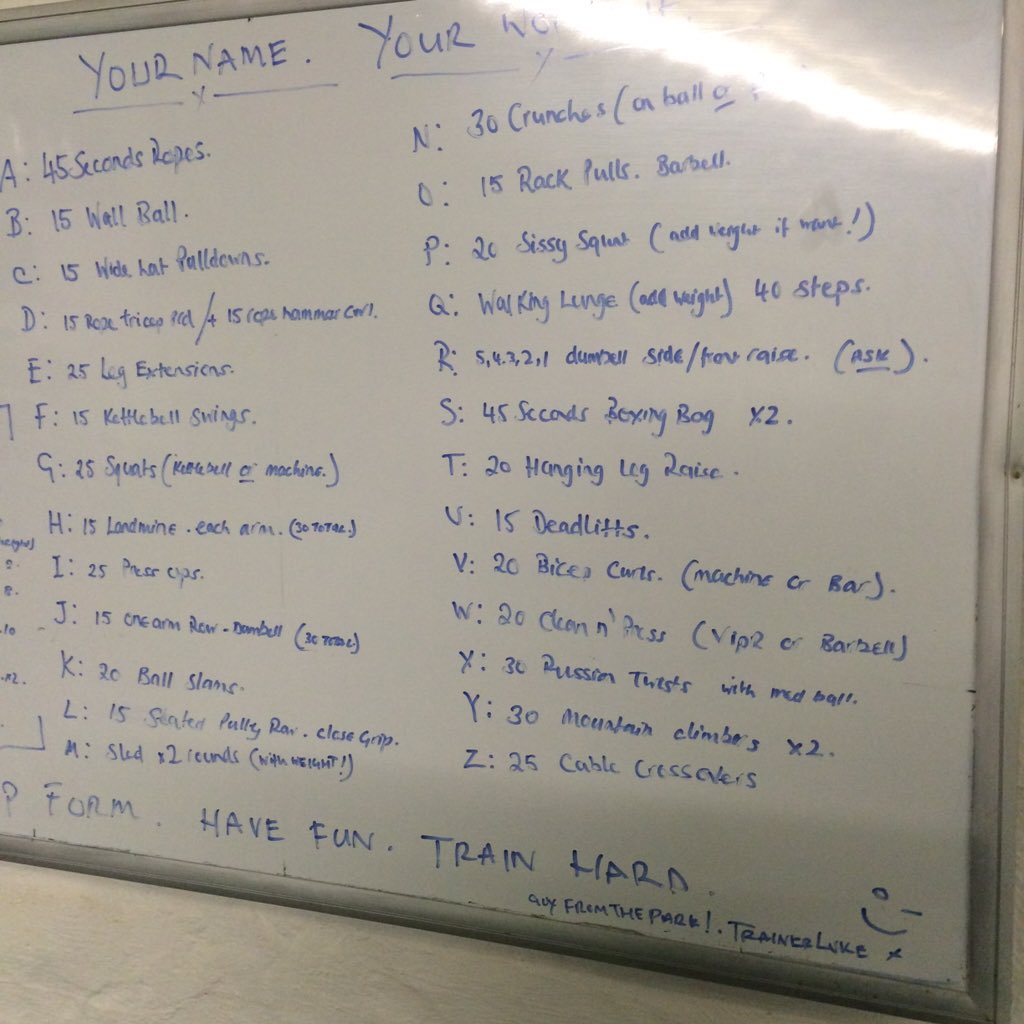 YOUR NAME. YOUR
x
A: 45 Seconds Ropes.
B: 15 Wall Ball.
C: 15 Wide Lat Pulldowns.
D: 15 Rope tricep /+ 15 rope hammar curl.
E: 25 Leg Extensions.
F: 15 Kettlebell Swings.
G: 25 Squats (Kettlebell or machine.)
H: 15 Landmine. each arm. (30 TOTAL)
I: 25 Press ups.
J: 15 One arm Row - Dumbell (30 TOTAL)
K: 20 Ball Slams.
L: 15 Seated Pully Row. close Grip.
M: Sled x2 rounds (WITH WEIGHT!)
N: 30 Crunches (on ball or
O: 15 Rack Pulls. Barbell.
P: 20 Sissy Squat (add weight if want!)
Q: Walking Lunge (add weight) 40 steps.
R: 5,4,3,2,1 dumbell side/front raise. (ASK).
S: 45 Seconds Boxing Bag x2.
T: 20 Hanging Leg Raise.
U: 15 Deadlifts.
V: 20 Bicep Curls. (machine or Bar).
W: 20 Clean n' Press (ViPR or Barbell)
X: 30 Russian Twists with med ball.
Y: 30 Mountain climbers x2.
Z: 25 Cable Crossovers
FORM. HAVE FUN. TRAIN HARD.
GUY FROM THE PARK!. TRAINER LUKE x